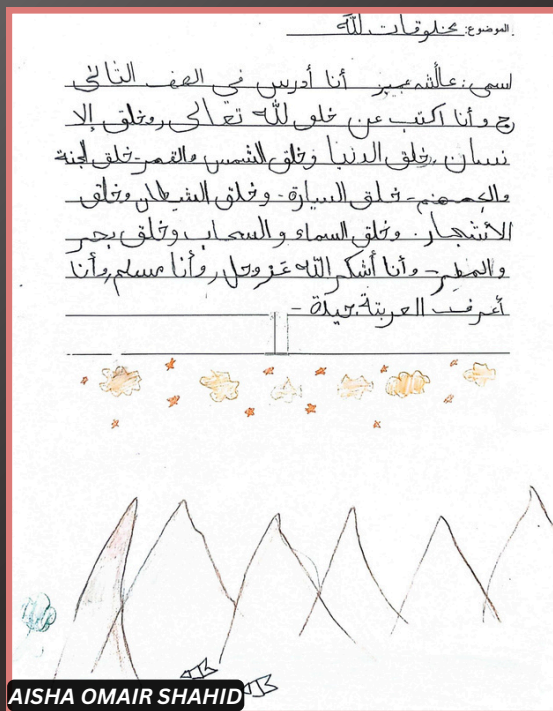 الموضوع: مخلوقات لله
اسمي: عائشه عمير أنا أدرس في الصف الثاني
ج وأنا اكتب عن خلق لله تعالى, وخلق إلا
نسان, خلق الدنيا وخلق الشمس والقمر- خلق لجنة
والجهنم- خلق السيارة- وخلق الشيطان وخلق
الأشجار. وخلق السماء والسحاب وخلق بحر
والمطر- وأنا أشكر الله عز وجل, وأنا مسلم, وأنا
أعرف العربية جيدة-
AISHA OMAIR SHAHID